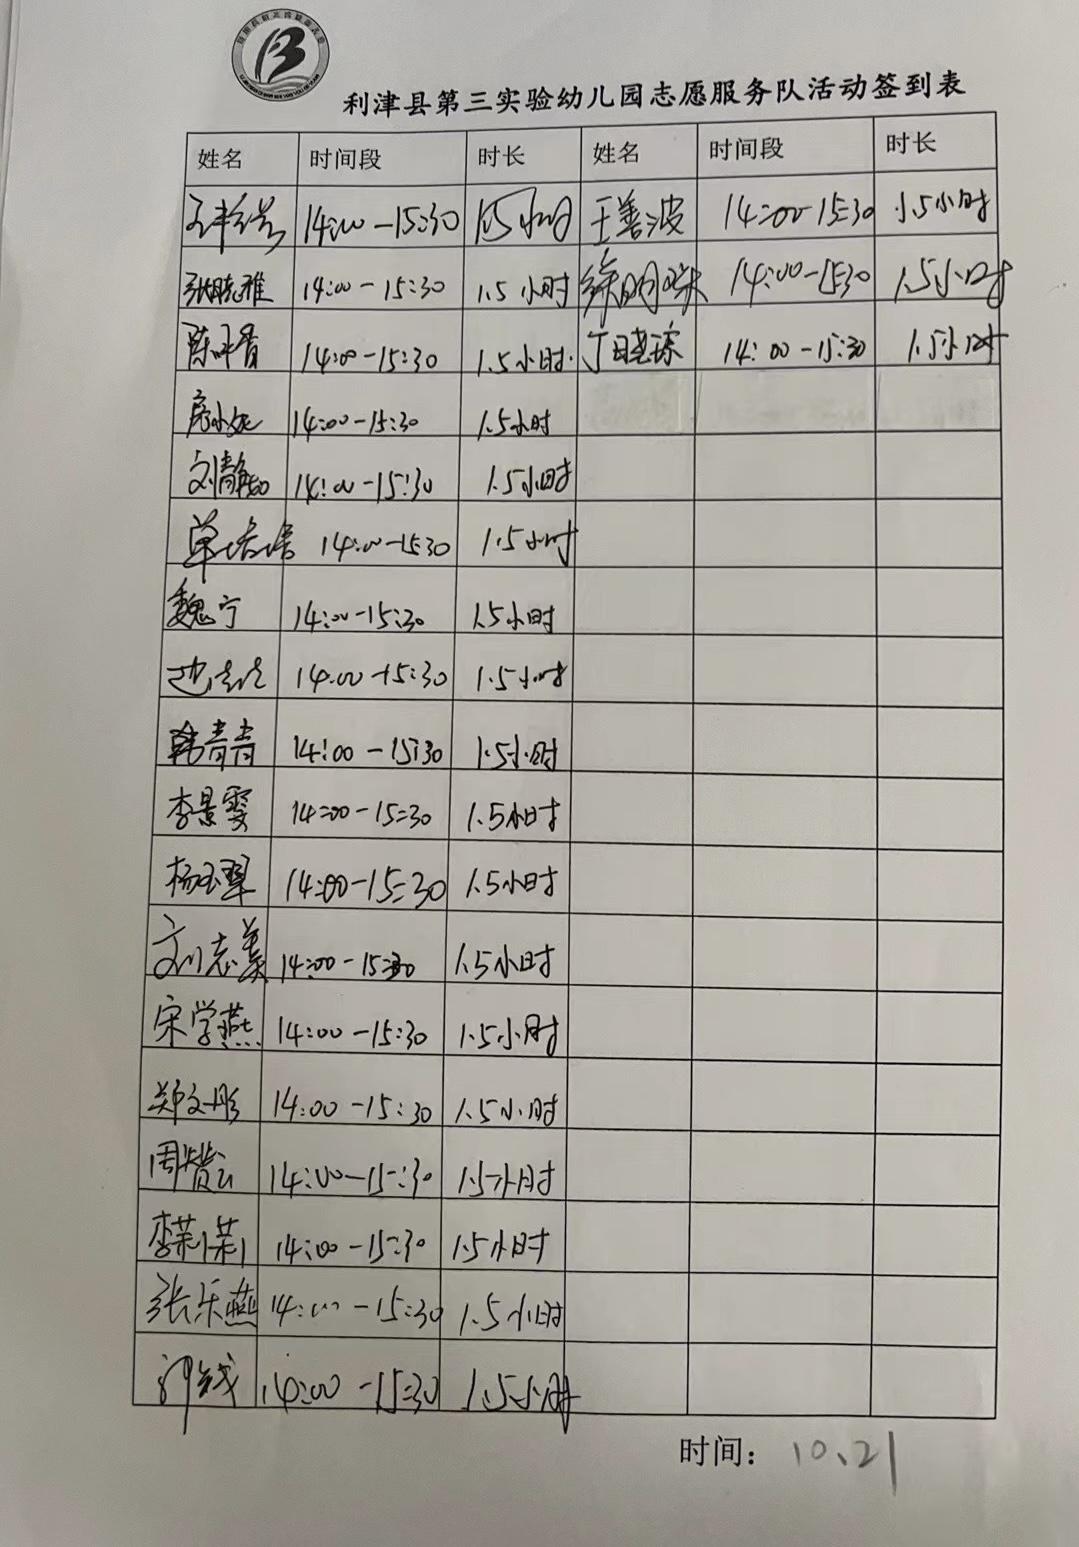 利津县第三实验幼儿园志愿服务队活动签到表
姓名 时间段 时长 姓名 时间段 时长
14:00-15:30 1.5小时 王善波 14:00-15:30 1.5小时
张晓雅 14:00-15:30 1.5小时 徐明 14:00-15:30 1.5小时
陈 14:00-15:30 1.5小时 丁晓琼 14:00-15:30 1.5小时
14:00-15:30 1.5小时
刘静 14:00-15:30 1.5小时
单培培 14:00-15:30 1.5小时
魏宁 14:00-15:30 1.5小时
14:00-15:30 1.5小时
韩青青 14:00-15:30 1.5小时
李景雯 14:00-15:30 1.5小时
杨玉翠 14:00-15:30 1.5小时
刘志美 14:00-15:30 1.5小时
宋学燕 14:00-15:30 1.5小时
郑文彤 14:00-15:30 1.5小时
周 14:00-15:30 1.5小时
李莉莉 14:00-15:30 1.5小时
张乐燕 14:00-15:30 1.5小时
14:00-15:30 1.5小时
时间：10、21